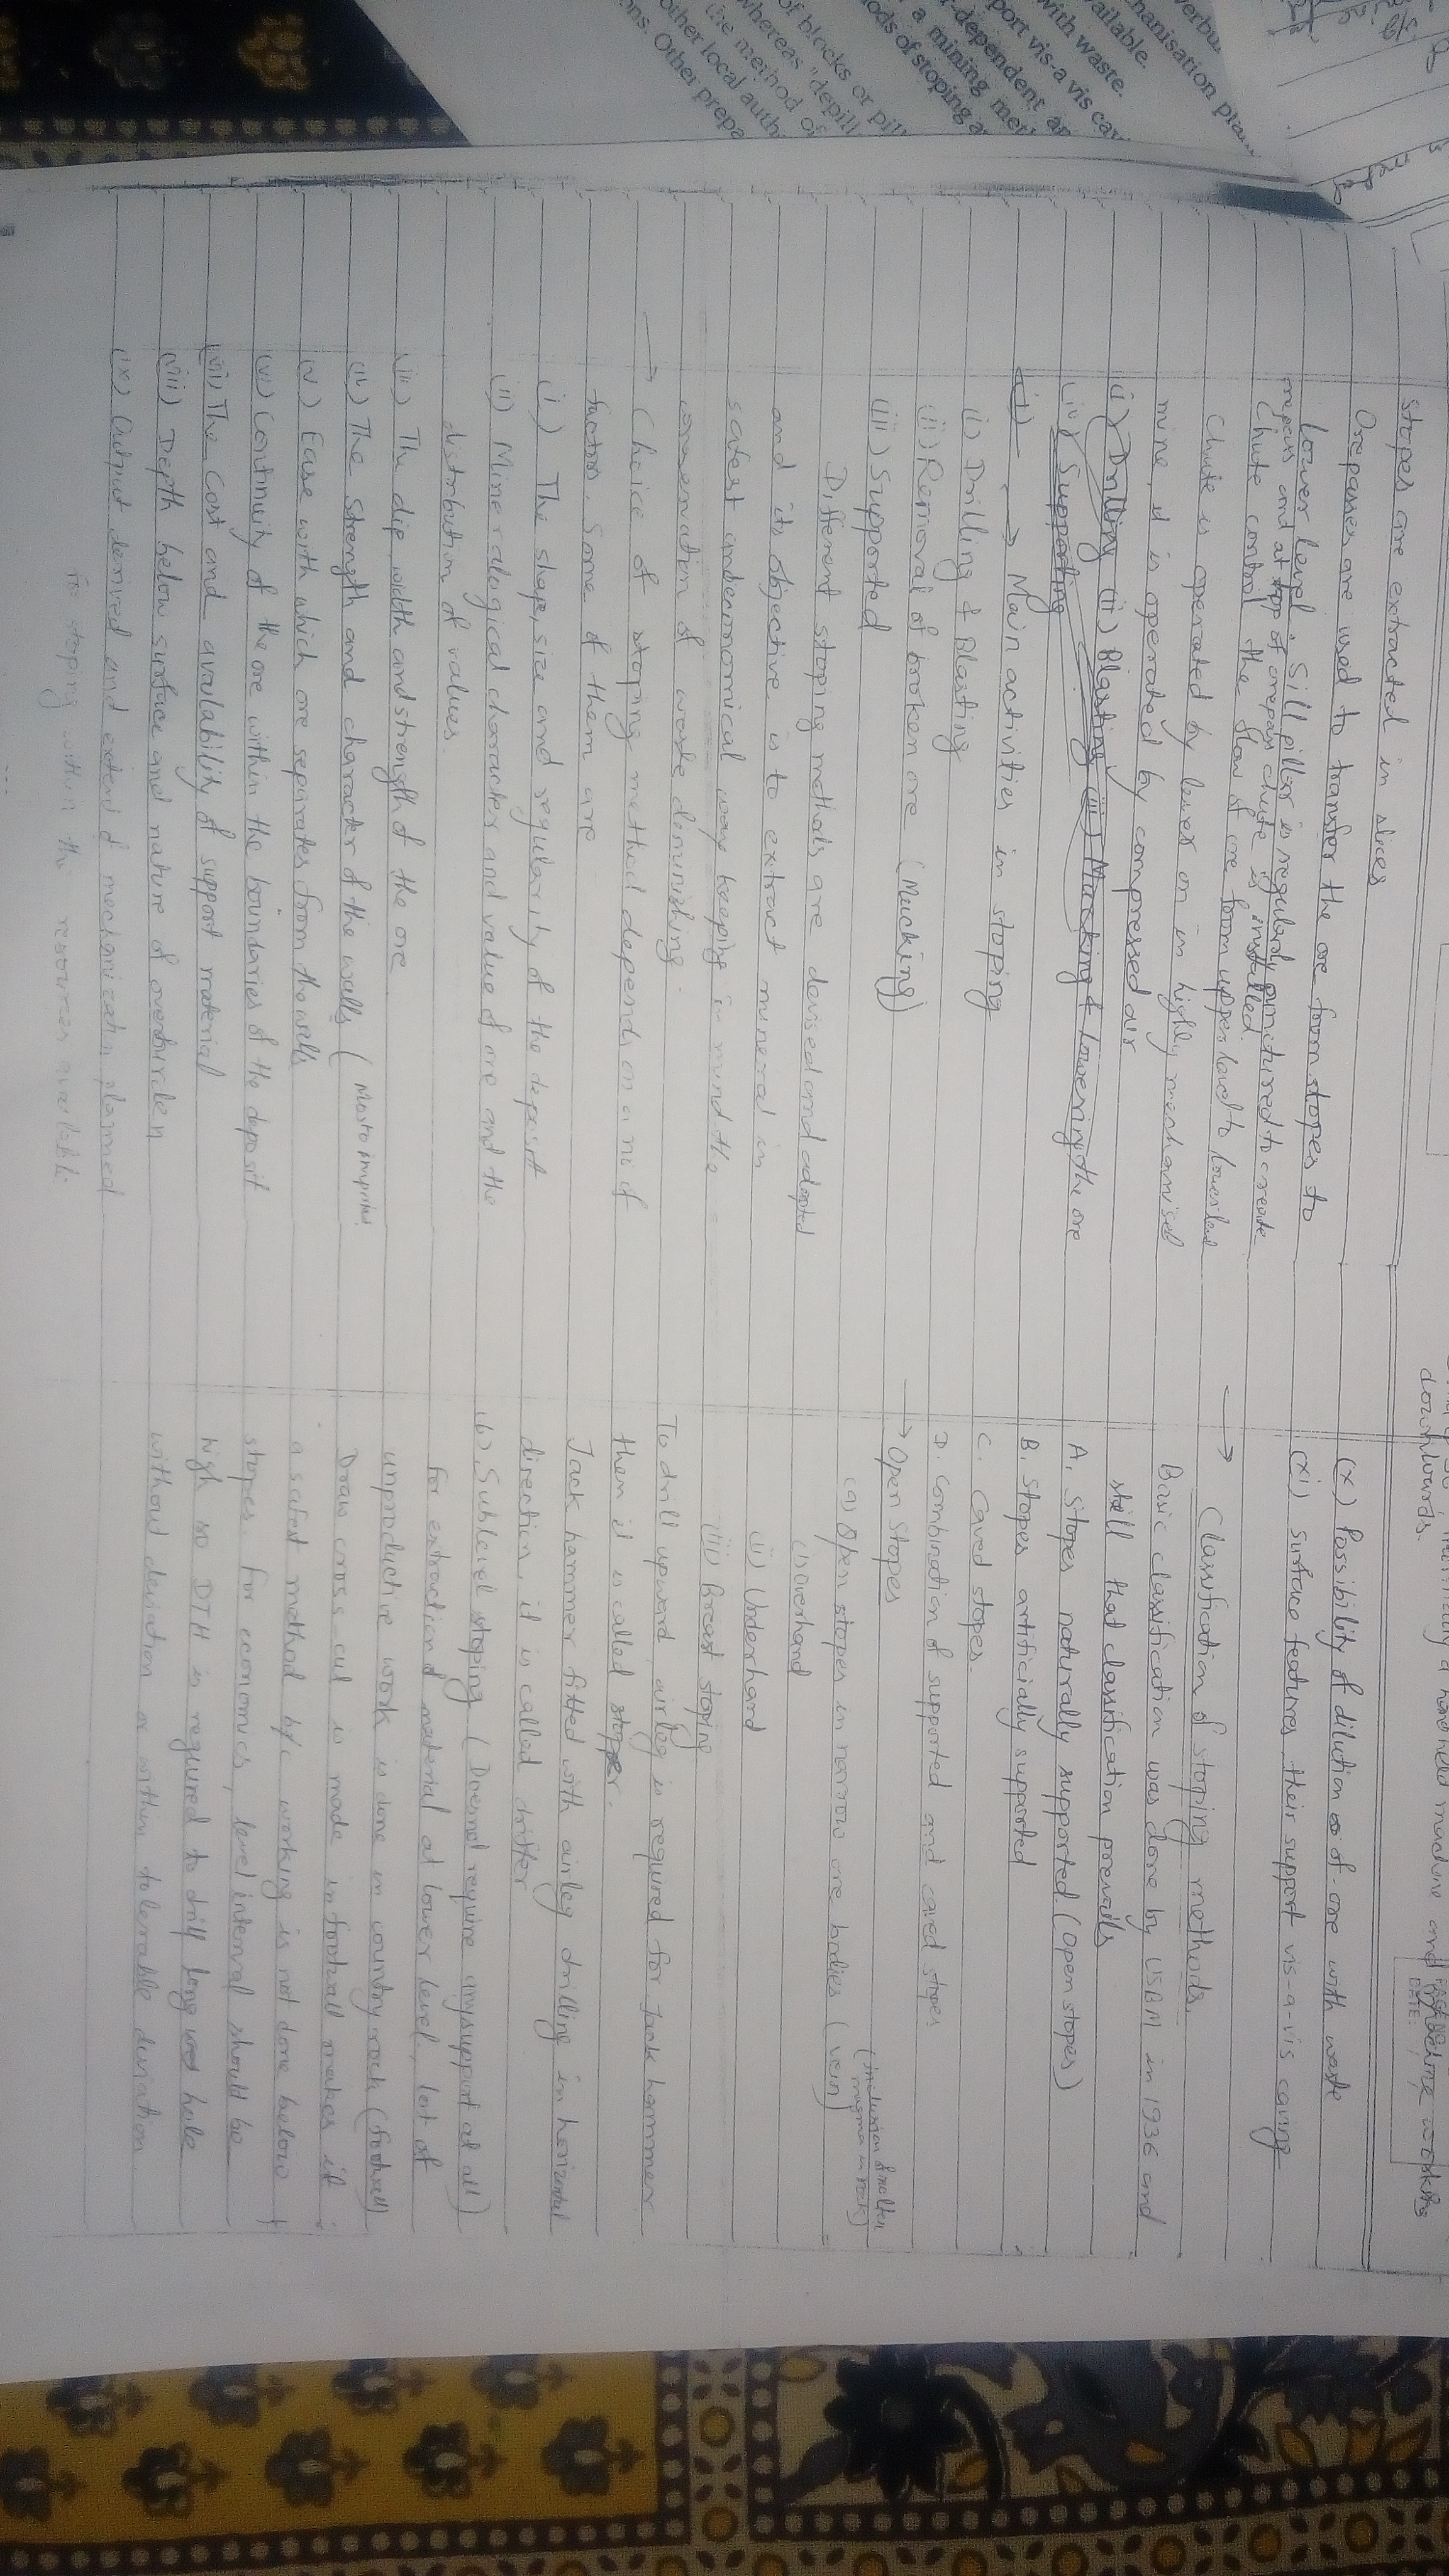 stopes are extracted in slices
Orepasses are used to transfer the ore from stopes to
lower level. Sill pillar is regularly punctured to create
orepass and at top of orepass chute is installed.
Chute control the flow of ore from upper level to lower level
Chute is operated by lever on in highly mechanised
mine, it is operated by compressed air
(i) Drilling (ii) Blasting (iii) Mucking & lowering the ore
(iv) Supporting
(i) → Main activities in stoping
(i) Drilling & Blasting
(ii) Removal of broken ore (Mucking)
(iii) Supported
Different stoping methods are devised and adopted
and its objective is to extract mineral in
safest and economical way keeping in mind the
conservation of waste diminishing
→ Choice of stoping method depends on a no of
factors. Some of them are
(i) The shape, size and regularity of the deposit
(ii) Mineralogical character and value of ore and the
distribution of values.
(iii) The dip, width and strength of the ore
(iv) The strength and character of the walls (Most
(v) Ease with which ore separates from the walls
(vi) Continuity of the ore within the boundaries of the deposit
(vii) The cost and availability of support material
(viii) Depth below surface and nature of overburden
(ix) Output derived and extend of mechanization planned
for stoping within the resources available
a hand held machine and machine working
downwards.
PAGE NO.
DATE: / /
(x) Possibility of dilution of ore with waste
(xi) surface features, their support vis-a-vis caving
→ Classification of stoping methods.
Basic classification was done by USBM in 1936 and
still that classification prevails
A. Stopes naturally supported. (Open stopes)
B. Stopes artificially supported
C. Caved stopes.
D. Combination of supported and caved stopes
→ Open Stopes
(inclusion of molten
magma in rock)
(a) Open stopes in narrow ore bodies (vein)
(i) Overhand
(ii) Underhand
(iii) Breast stoping
To drill upward, airleg is required for Jack hammer
then it is called stopper.
Jack hammer fitted with airleg drilling in horizontal
direction, it is called drifter
(b) Sublevel stoping (Doesnot require any support at all)
For extraction of material at lower level, lot of
unproductive work is done in country rock (footwall)
Draw cross cut is made in footwall makes it
a safest method b/c working is not done below
stopes. For economics, level interval should be
high so DTH is required to drill long hole
without deviation or within tolerable deviation
verbu
hanisation pla
ailable.
with waste.
port vis-a vis cav
-dependent an
a mining met
ods of stoping a
of blocks or pil
whereas "depill
the method of
other local auth
ns. Other prepa